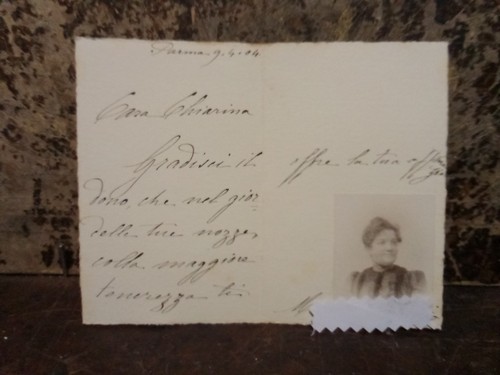 Parma 9.4.04
Cara Chiarina
Gradisci il
dono che nel gior
delle tue nozze,
colla maggiore
tenerezza ti
offre la tua